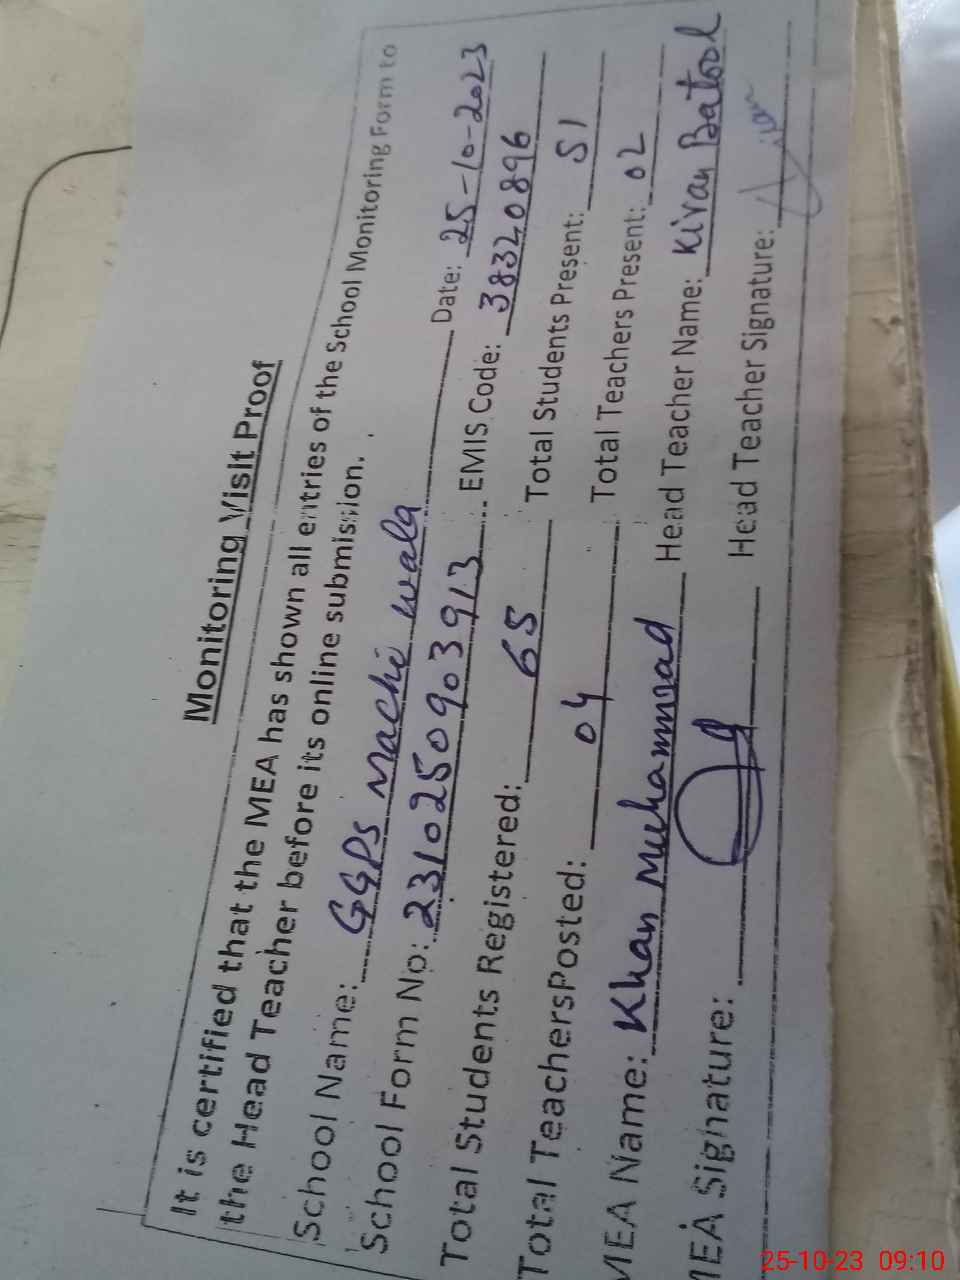 Monitoring Visit Proof
It is certified that the MEA has shown all entries of the School Monitoring Form to
the Head Teacher before its online submission.
School Name: GGPS Machi wala Date: 25-10-2023
School Form No: 2310250903913 EMIS Code: 38320896
Total Students Registered: 65 Total Students Present: 51
Total TeachersPosted: 04 Total Teachers Present: 02
MEA Name: Khan Muhammad Head Teacher Name: Kiran Batool
MEA Signature: Head Teacher Signature:
25-10-23 09:10